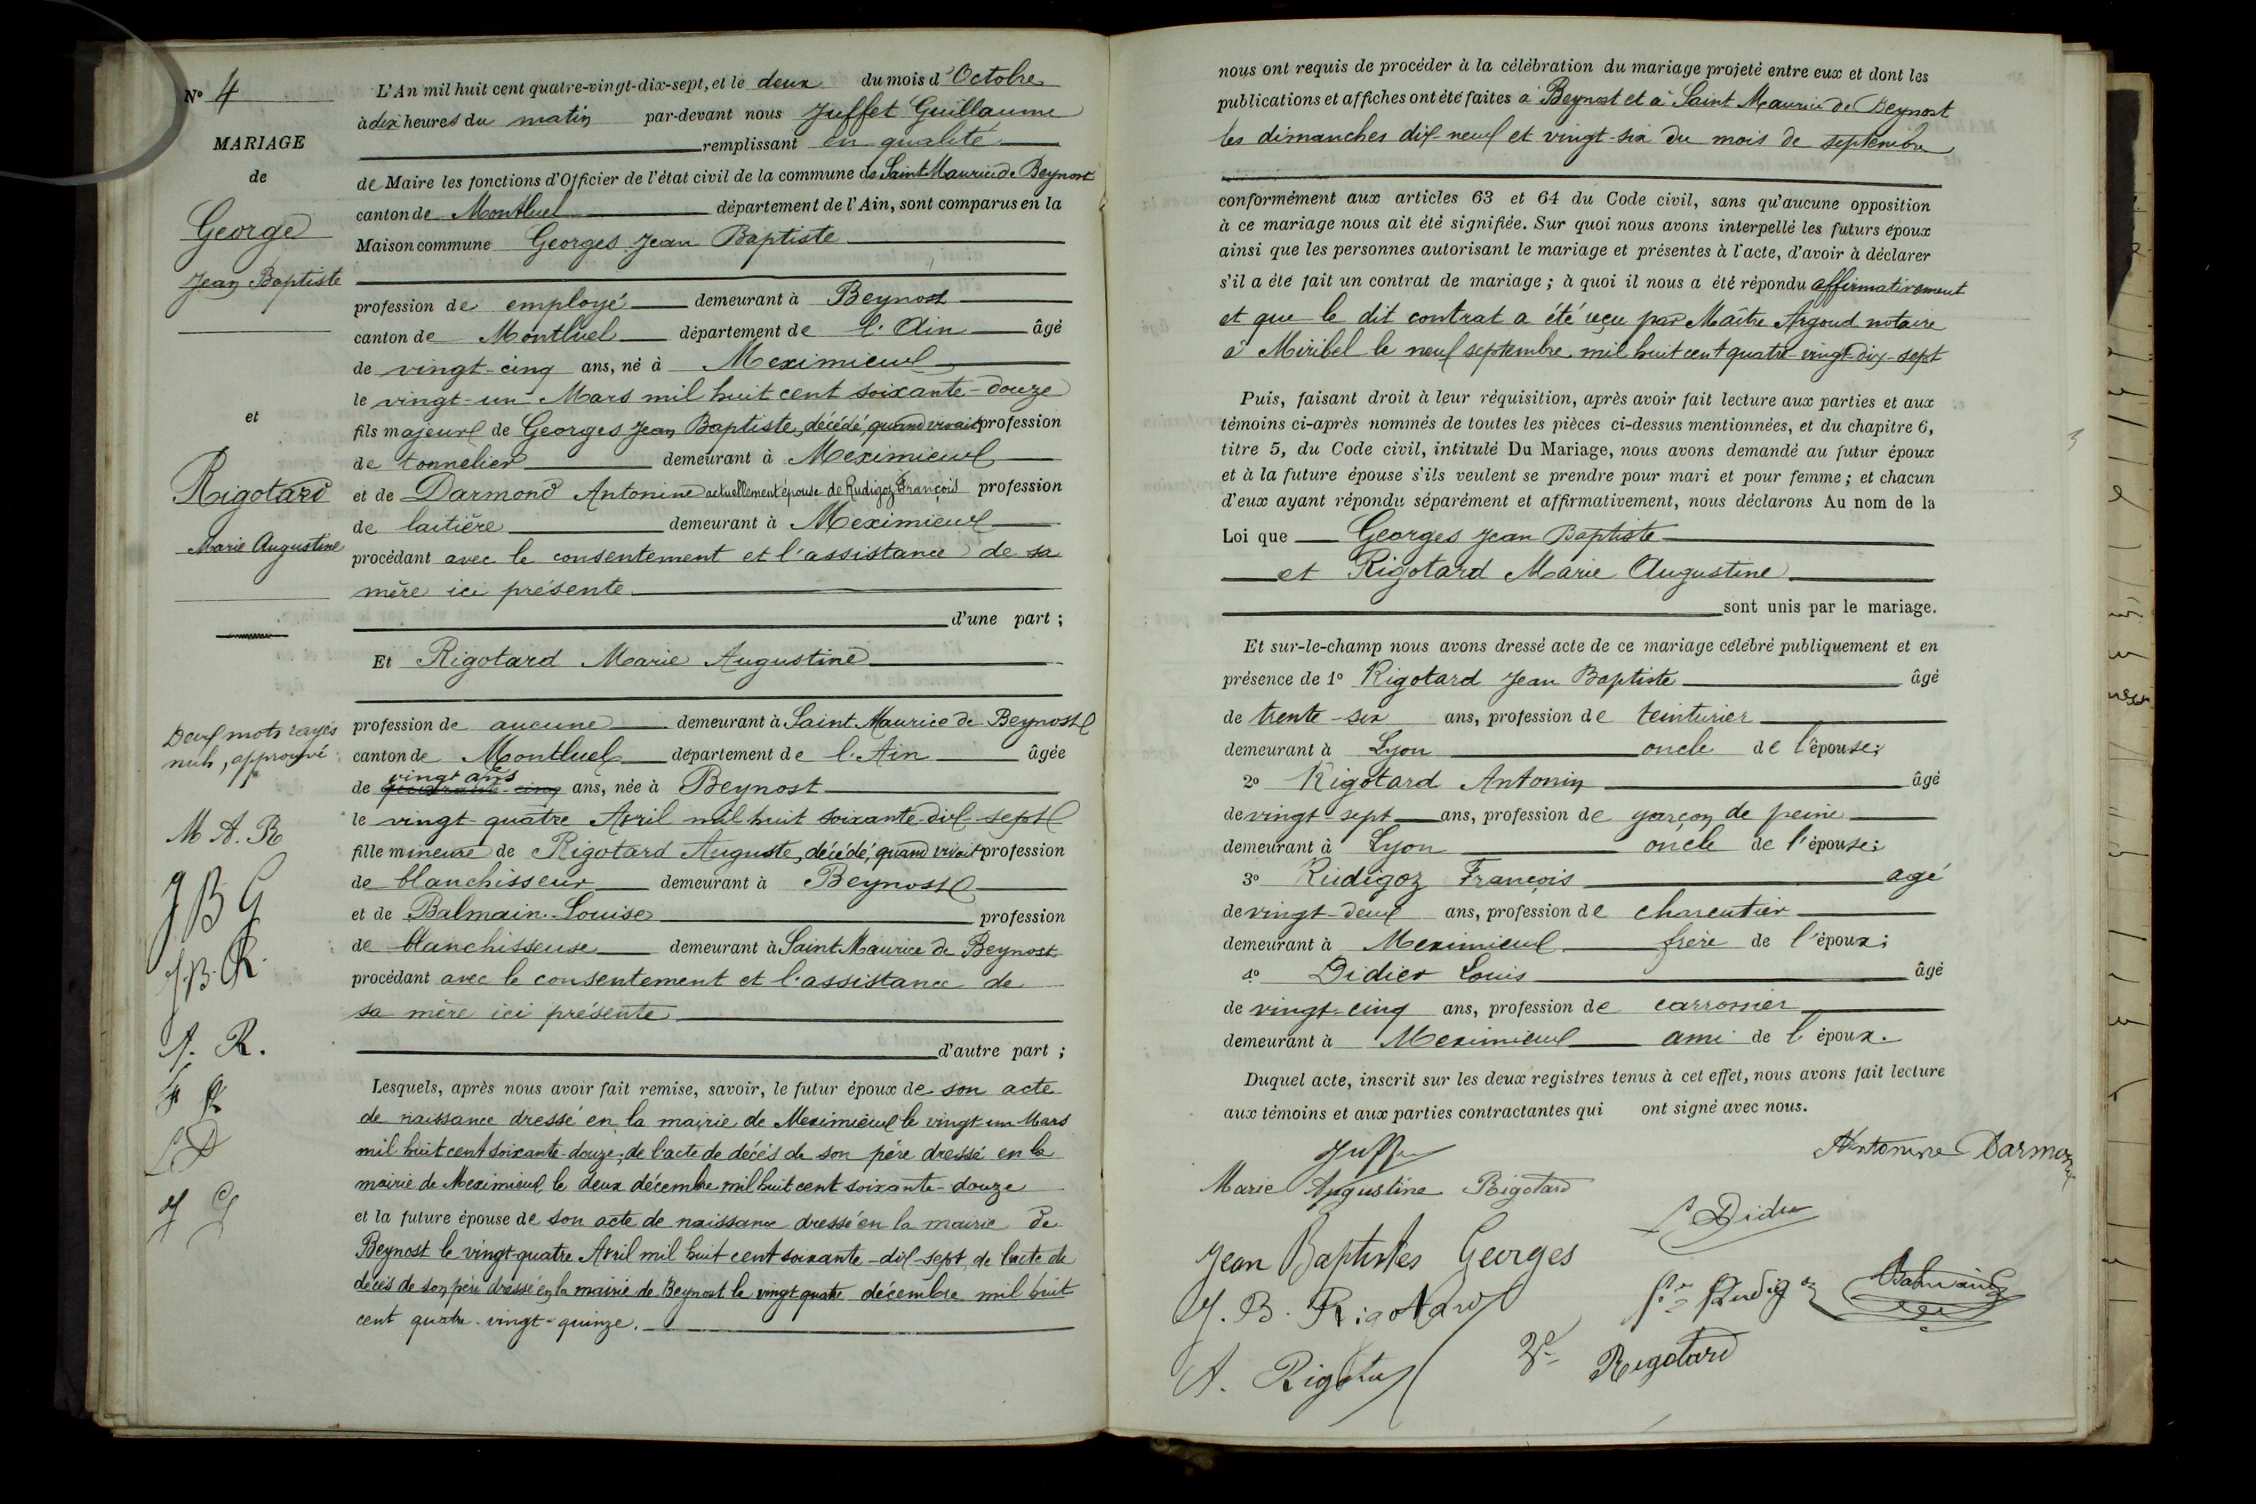 N° 4
MARIAGE
de
George
Jean Baptiste
et
Rigotard
Marie Augustine
Deux mots rayés
nuls, approuvé
M A. R
J B G
J. B. R.
A. R.
F R
L D
J G
L'An mil huit cent quatre-vingt-dix-sept, et le deux du mois d'Octobre
à dix heures du matin par-devant nous Juffet Guillaume
remplissant en qualité
de Maire les fonctions d'Officier de l'état civil de la commune de Saint Maurice de Beynost
canton de Montluel département de l'Ain, sont comparus en la
Maison commune Georges Jean Baptiste
profession de employé demeurant à Beynost
canton de Montluel département de l'Ain âgé
de vingt-cinq ans, né à Meximieux
le vingt-un Mars mil huit cent soixante-douze
fils majeur de Georges Jean Baptiste, décédé, quand vivait profession
de tonnelier demeurant à Meximieux
et de Darmond Antonine actuellement épouse de Rudigoz François profession
de laitière demeurant à Meximieux
procédant avec le consentement et l'assistance de sa
mère ici présente
d'une part ;
Et Rigotard Marie Augustine
profession de aucune demeurant à Saint Maurice de Beynost
canton de Montluel département de l'Ain âgée
vingt ans
de quarante-cinq ans, née à Beynost
le vingt-quatre Avril mil huit soixante-dix-sept
fille mineure de Rigotard Auguste, décédé, quand vivait profession
de blanchisseur demeurant à Beynost
et de Balmain Louise profession
de blanchisseuse demeurant à Saint Maurice de Beynost
procédant avec le consentement et l'assistance de
sa mère ici présente
d'autre part ;
Lesquels, après nous avoir fait remise, savoir, le futur époux de son acte
de naissance dressé en la mairie de Meximieux le vingt-un Mars
mil huit cent soixante-douze, de l'acte de décès de son père dressé en la
mairie de Meximieux le deux décembre mil huit cent soixante-douze
et la future épouse de son acte de naissance dressé en la mairie de
Beynost le vingt-quatre Avril mil huit cent soixante-dix-sept, de l'acte de
décès de son père dressé en la mairie de Beynost le vingt quatre décembre mil huit
cent quatre-vingt-quinze.
nous ont requis de procéder à la célébration du mariage projeté entre eux et dont les
publications et affiches ont été faites à Beynost et à Saint Maurice de Beynost
les dimanches dix-neuf et vingt-six du mois de septembre
conformément aux articles 63 et 64 du Code civil, sans qu'aucune opposition
à ce mariage nous ait été signifiée. Sur quoi nous avons interpellé les futurs époux
ainsi que les personnes autorisant le mariage et présentes à l'acte, d'avoir à déclarer
s'il a été fait un contrat de mariage ; à quoi il nous a été répondu affirmativement
et que le dit contrat a été reçu par Maître Argoud notaire
à Miribel le neuf septembre mil huit cent quatre-vingt-dix-sept
Puis, faisant droit à leur réquisition, après avoir fait lecture aux parties et aux
témoins ci-après nommés de toutes les pièces ci-dessus mentionnées, et du chapitre 6,
titre 5, du Code civil, intitulé Du Mariage, nous avons demandé au futur époux
et à la future épouse s'ils veulent se prendre pour mari et pour femme ; et chacun
d'eux ayant répondu séparément et affirmativement, nous déclarons Au nom de la
Loi que Georges Jean Baptiste
et Rigotard Marie Augustine
sont unis par le mariage.
Et sur-le-champ nous avons dressé acte de ce mariage célébré publiquement et en
présence de 1° Rigotard Jean Baptiste âgé
de trente-six ans, profession de teinturier
demeurant à Lyon oncle de l'épouse ;
2° Rigotard Antonin âgé
de vingt-sept ans, profession de garçon de peine
demeurant à Lyon oncle de l'épouse ;
3° Rudigoz François agé
de vingt-deux ans, profession de charcutier
demeurant à Meximieux frère de l'époux ;
4° Didier Louis âgé
de vingt-cinq ans, profession de carrossier
demeurant à Meximieux ami de l'époux.
Duquel acte, inscrit sur les deux registres tenus à cet effet, nous avons fait lecture
aux témoins et aux parties contractantes qui ont signé avec nous.
Juffet
Antonine Darmond
Marie Augustine Rigotard
L Didier
Jean Baptistes Georges
J. B. Rigotard
Rudigoz
Balmain
A. Rigotard
Ve Rigotard